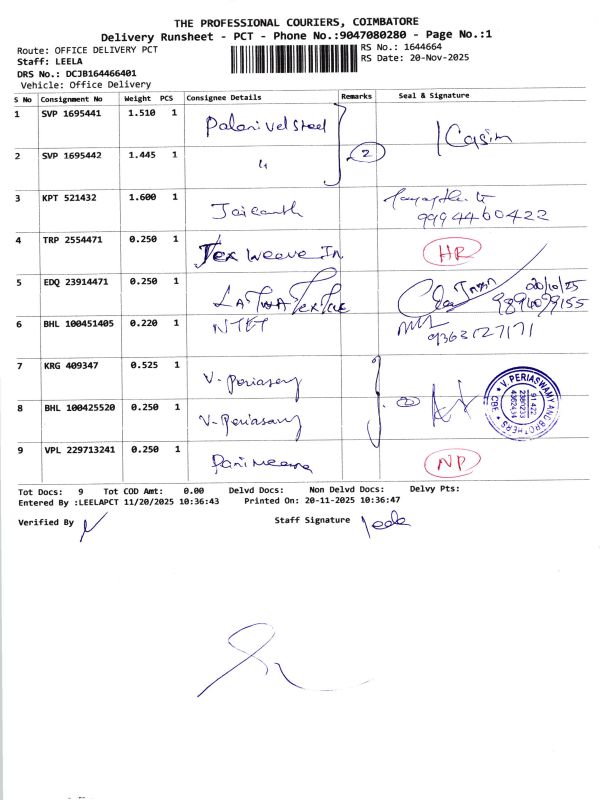 THE PROFESSIONAL COURIERS, COIMBATORE
Delivery Runsheet - PCT - Phone No.:9047080280 - Page No.:1
Route: OFFICE DELIVERY PCT
RS No.: 1644664
Staff: LEELA
RS Date: 20-Nov-2025
DRS No.: DCJB164466401
Vehicle: Office Delivery
S No Consignment No Weight PCS Consignee Details Remarks Seal & Signature
1 SVP 1695441 1.510 1 Palanivel Steel
2 SVP 1695442 1.445 1 " 2 Casim
3 KPT 521432 1.600 1 Jaikanth 9994460422
4 TRP 2554471 0.250 1 Tex Weave In HR
5 EDQ 23914471 0.250 1 9894099155
6 BHL 100451405 0.220 1 NTTT 9363127171
7 KRG 409347 0.525 1 V. Periasamy
8 BHL 100425520 0.250 1 V. Periasamy 2
V. PERIASWAMY AND BROTHERS
CBE
9 VPL 229713241 0.250 1 NP
Tot Docs: 9 Tot COD Amt: 0.00 Delvd Docs: Non Delvd Docs: Delvy Pts:
Entered By :LEELAPCT 11/20/2025 10:36:43 Printed On: 20-11-2025 10:36:47
Verified By
Staff Signature Leela